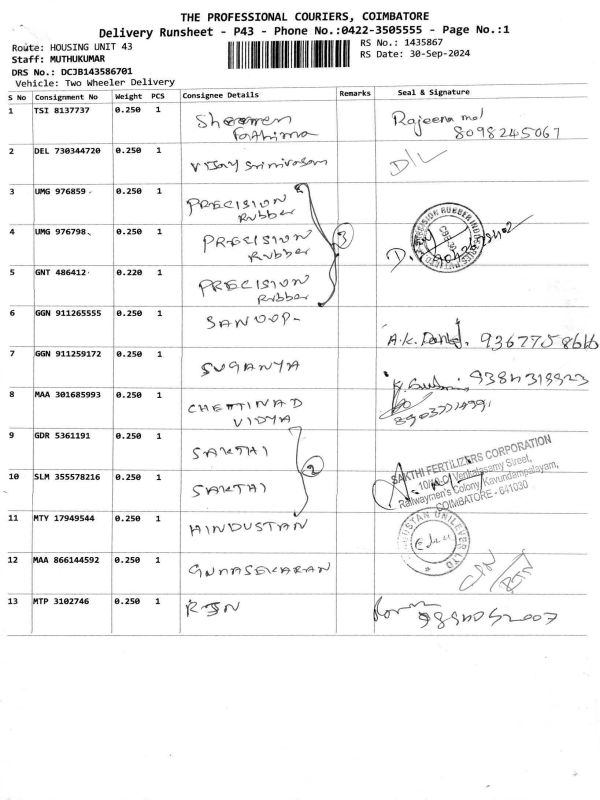 THE PROFESSIONAL COURIERS, COIMBATORE
Delivery Runsheet - P43 - Phone No.:0422-3505555 - Page No.:1
Route: HOUSING UNIT 43
RS No.: 1435867
Staff: MUTHUKUMAR
RS Date: 30-Sep-2024
DRS No.: DCJB143586701
Vehicle: Two Wheeler Delivery
S No Consignment No Weight PCS Consignee Details Remarks Seal & Signature
1 TSI 8137737 0.250 1 Sharmen Rajeena mol
Fathima 8098245067
2 DEL 730344720 0.250 1 Vijay Srinivasan D/L
3 UMG 976859 0.250 1 PRECISION
Rubber
4 UMG 976798 0.250 1 PRECISION 3
Rubber
5 GNT 486412 0.220 1 PRECISION
Rubber
6 GGN 911265555 0.250 1 SANOOP-
A.K. 9367758666
7 GGN 911259172 0.250 1 SUGANYA
9384318923
8 MAA 301685993 0.250 1 CHETTINAD
VIDYA
9 GDR 5361191 0.250 1 SAKTHI
2
SAKTHI FERTILIZERS CORPORATION
Venkatasamy Street,
Railwaymen's Colony, Kavundampalayam,
COIMBATORE - 641030
10 SLM 355578216 0.250 1 SAKTHI
11 MTY 17949544 0.250 1 HINDUSTAN
HINDUSTAN UNILEVER LTD
12 MAA 866144592 0.250 1 GUNASEKARAN
13 MTP 3102746 0.250 1 RJN